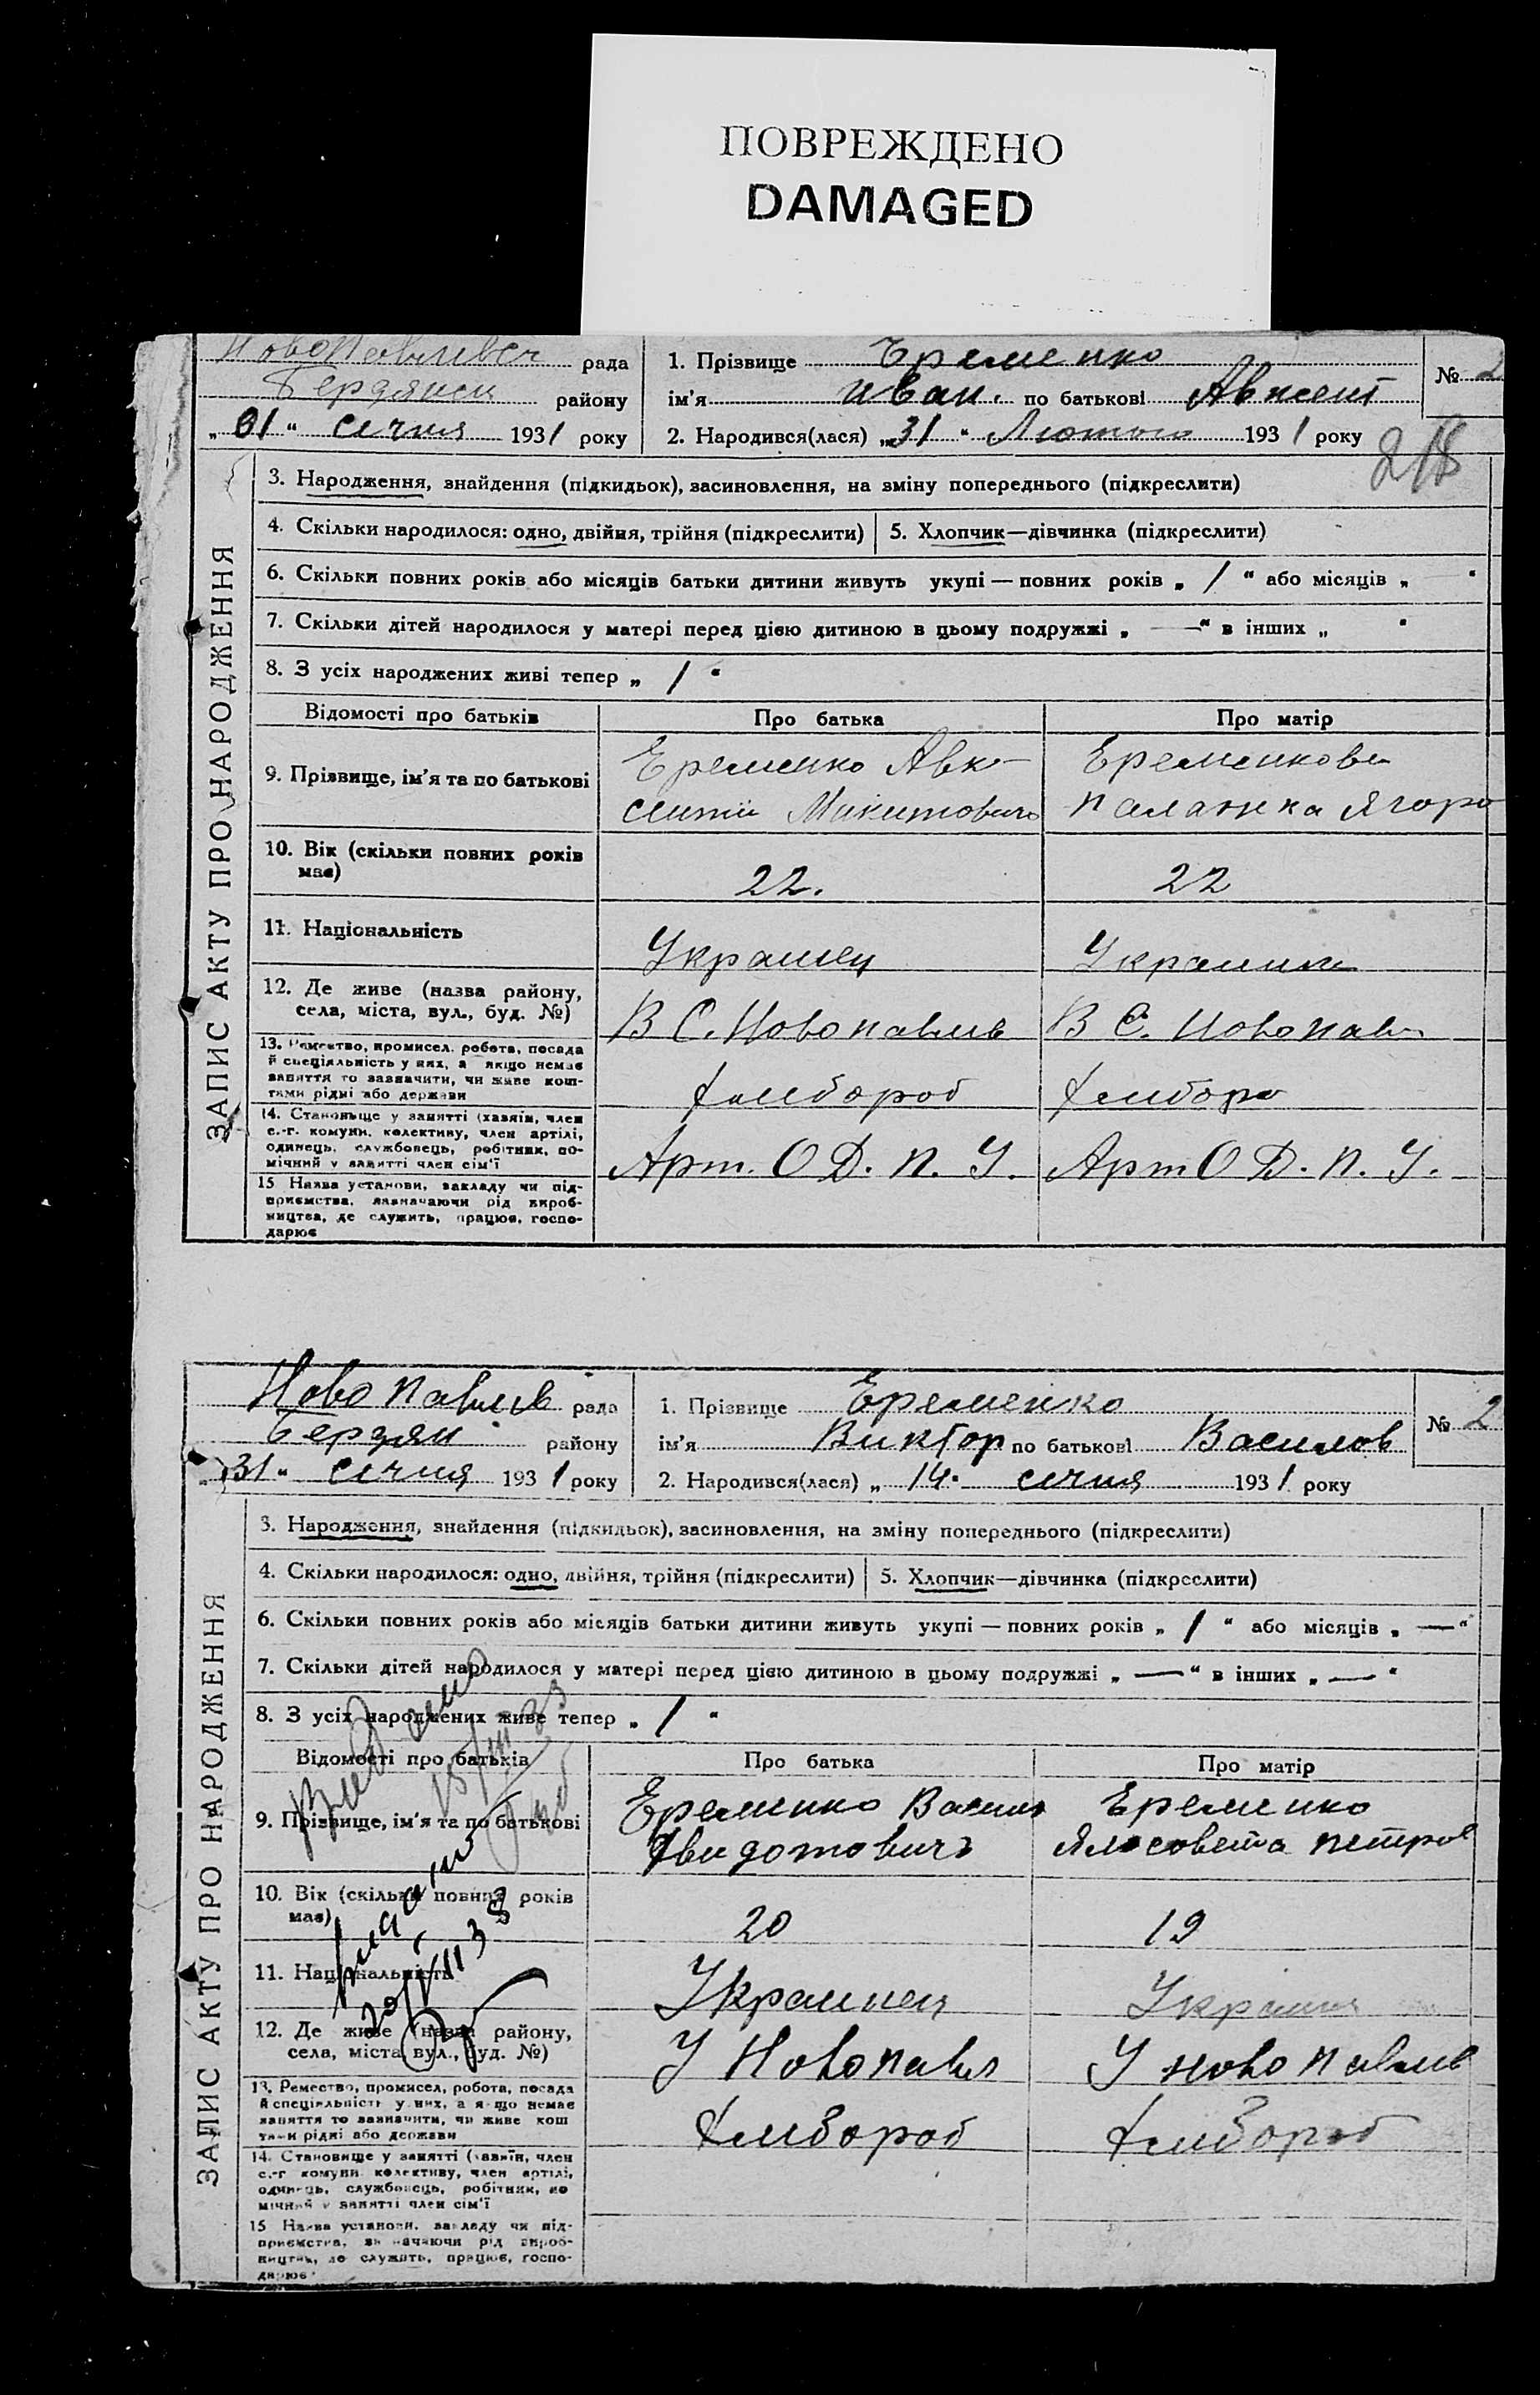 ПОВРЕЖДЕНО
DAMAGED
рада
району
„ 01 “ січня 1931 року
1. Прізвище Еременко
ім'я Иван. по батькові Авксент
2. Народився(лася) „31 “ Лютого 1931 року
№ 2
218
ЗАПИС АКТУ ПРО НАРОДЖЕННЯ
3. Народження, знайдення (підкидьок), засиновлення, на зміну попереднього (підкреслити)
4. Скільки народилося: одно, двійня, трійня (підкреслити)
5. Хлопчик—дівчинка (підкреслити)
6. Скільки повних років або місяців батьки дитини живуть укупі — повних років „ 1 “ або місяців „ “
7. Скільки дітей народилося у матері перед цією дитиною в цьому подружжі „ — “ в інших „ “
8. З усіх народжених живі тепер „ 1 “
Відомості про батьків
Про батька
Про матір
9. Прізвище, ім'я та по батькові
Еременко Авк-
сентий Микитовичъ
Еременкова
Палажка Ягоро
10. Вік (скільки повних років
має)
22.
22
11. Національність
Украинец
Украинка
12. Де живе (назва району,
села, міста, вул., буд. №)
В С. Новопавлив
В С. Новопавл
13. Ремество, промисел, робота, посада
й спеціяльність у них, а якщо немає
заняття то зазначити, чи живе кош-
тами рідні або держави
Хлибороб
Хлиборо
14. Становище у занятті (хазяїн, член
с.-г. комуни, колективу, член артілі,
одинець, службовець, робітник, по-
мічний у занятті член сім'ї
Арт. О Д. П. У.
Арт О Д. П. У.
15 Назва установи, закладу чи під-
приємства, зазначаючи рід вироб-
ництва, де служить, працює, госпо-
дарює
Ново Павлив рада
Бердян району
„31“ січня 1931 року
1. Прізвище Еременко
ім'я Виктор по батькові Василов
2. Народився(лася) „ 14 “ січня 1931 року
№ 2
ЗАПИС АКТУ ПРО НАРОДЖЕННЯ
3. Народження, знайдення (підкидьок), засиновлення, на зміну попереднього (підкреслити)
4. Скільки народилося: одно, двійня, трійня (підкреслити)
5. Хлопчик—дівчинка (підкреслити)
6. Скільки повних років або місяців батьки дитини живуть укупі — повних років „ 1 “ або місяців „ — “
7. Скільки дітей народилося у матері перед цією дитиною в цьому подружжі „ — “ в інших „ — “
8. З усіх народжених живе тепер „ 1 “
Відомості про батьків
Про батька
Про матір
9. Прізвище, ім'я та по батькові
Еременко Василь
Авидотовичъ
Еременко
Ялесовета Петров
10. Вік (скільки повних років
має)
20
19
11. Національність
Украинец
12. Де живе (назва району,
села, міста, вул., буд. №)
У Новопавл
У Новопавлив
13. Ремество, промисел, робота, посада
й спеціяльність у них, а якщо немає
заняття то зазначити, чи живе кош
тами рідні або держави
Хлибороб
Хлибороб
14. Становище у занятті (хазяїн, член
с.-г комуни, колективу, член артілі,
одинець, службовець, робітник, по
мічний у занятті член сім'ї
15 Назва установи, закладу чи під-
приємства, зазначаючи рід вироб-
ництва, де служить, працює, госпо-
дарює